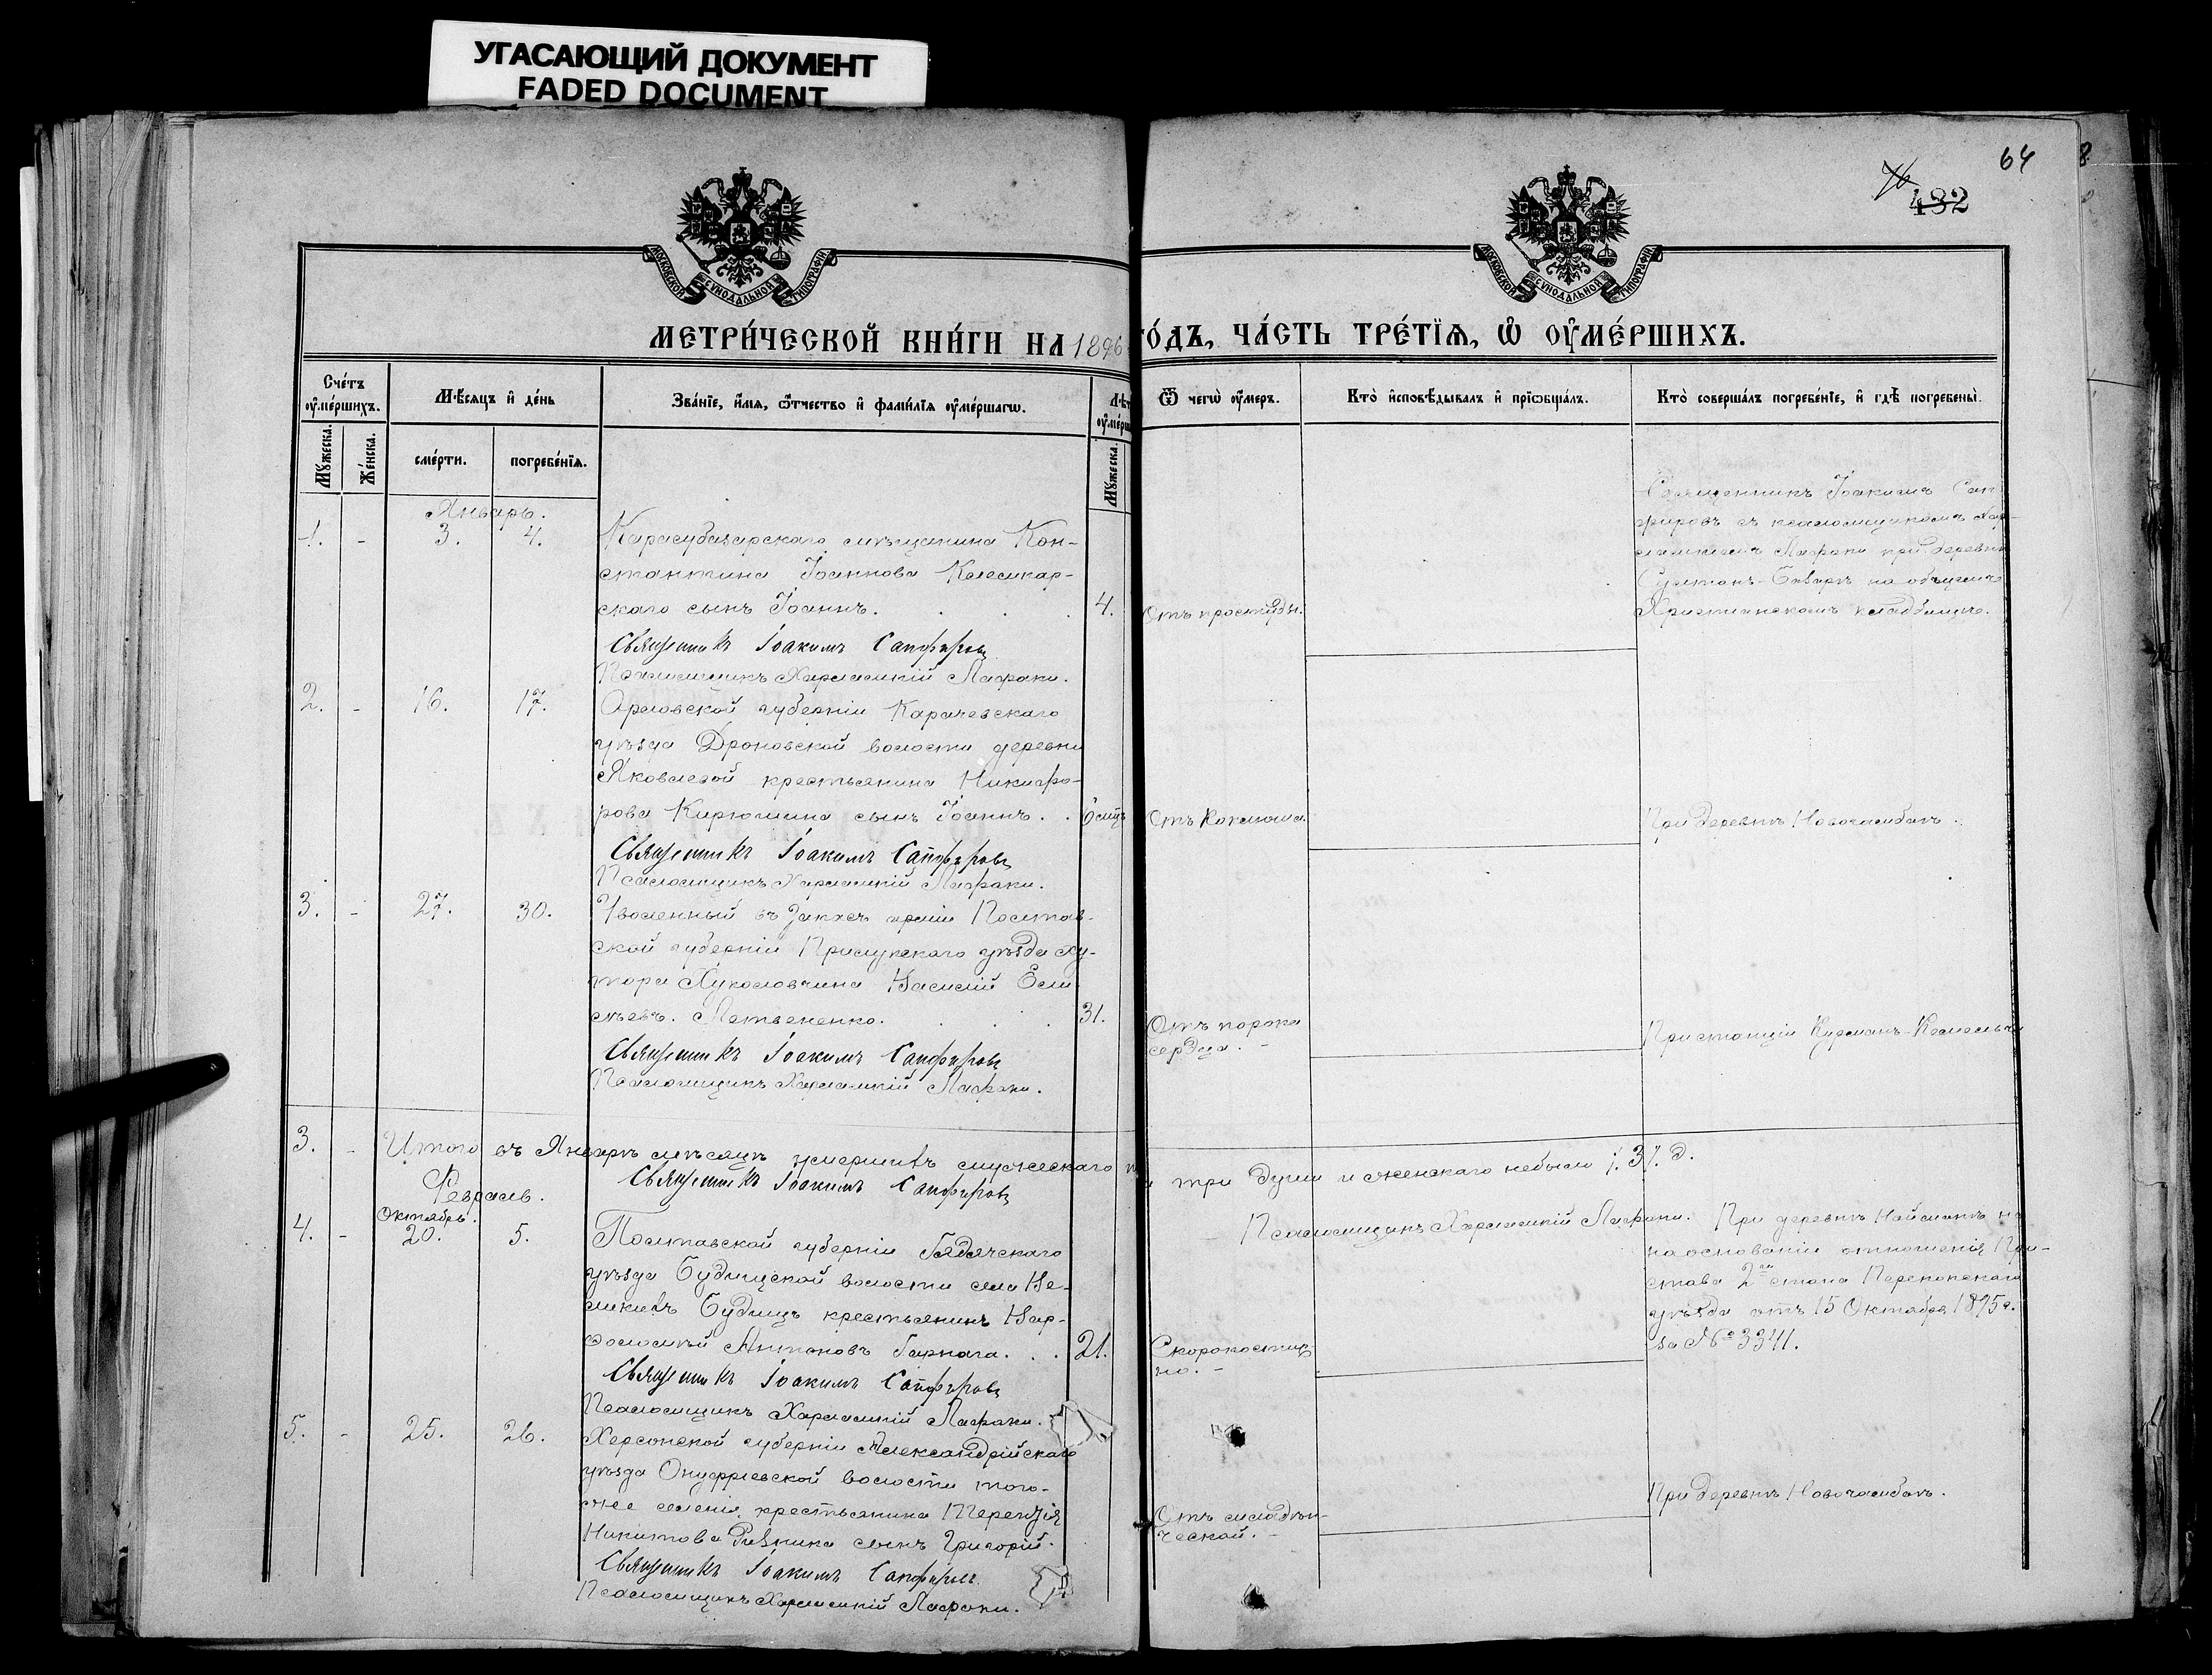 УГАСАЮЩИЙ ДОКУМЕНТ
FADED DOCUMENT
64
76
432
МОСКОВСКОЙ СѴНОДАЛЬНОЙ ТИПОГРАФІИ
МОСКОВСКОЙ СѴНОДАЛЬНОЙ ТИПОГРАФІИ
МЕТРИ́ЧЕСКОЙ КНИ́ГИ НА 1896 ГО́ДЪ, ЧА́СТЬ ТРЕ́ТЇѦ, Ѡ҆ ОУ҆МЕ́РШИХЪ.
Сче́тъ оу҆ме́ршихъ.
Мꙋжеска.
Же́нска.
Мѣ́сяцъ и҆ де́нь
сме́рти.
погребе́нїѧ.
Зва́нїе, и҆́мѧ, ѻ҆́тчество и҆ фами́лїѧ оу҆ме́ршагѡ.
Мꙋжеска.
Ѿ чегѡ̀ оу҆́меръ.
Кто̀ и҆сповѣ́дывалъ и҆ прїѡбща́лъ.
Кто̀ соверша́лъ погребе́нїе, и҆ гдѣ̀ погребены̀.
Январь.
1. - 3. 4. Карасубазарскаго мѣщанина Кон-
стантина Іоаннова
скаго сынъ Іоаннъ. . . . 4. Отъ простуды.
Священникъ Іоакимъ Сап-
фировъ съ псаломщикомъ Хар-
лампіемъ Лафаки при деревнѣ
Султанъ-Базаръ на общемъ
Христіанскомъ кладбищѣ.
Священникъ Іоакимъ Сапфировъ
Псаломщикъ Харлампій Лафаки.
2. - 16. 17. Орловской губерніи Карачевскаго
уѣзда Дроновской волости деревни
Яковлевой крестьянина Никифо-
рова Кирюшина сынъ Іоаннъ. . 6 мцъ Отъ коклюша. При деревнѣ
Священникъ Іоакимъ Сапфировъ
Псаломщикъ Харлампій Лафаки.
3. - 27. 30. Уволенный въ запасъ арміи Полтав-
ской губерніи Прилукскаго уѣзда ху-
тора Василій Ели-
сѣевъ. . . . 31. Отъ порока
сердца. - При станціи Курманъ-Кемельчи
Священникъ Іоакимъ Сапфировъ
Псаломщикъ Харлампій Лафаки.
3. - Итого въ Январѣ мѣсяцѣ умершихъ мужескаго три души и женскаго небыло /. 3 /. д.
Священникъ Іоакимъ Сапфировъ
Псаломщикъ Харлампій Лафаки.
Февраль.
Октябрь.
4. - 20. 5. Полтавской губерніи Гадячскаго
уѣзда Будищской волости села Ве-
ликихъ Будищъ крестьянинъ Вар-
фоломѣй Антоновъ Гарнага. . . 21. Скоропостиж
но. -
При деревнѣ Найманъ на
на основаніи отношенія При-
става 2го стана Перекопскаго
уѣзда отъ 15 Октября 1895 г.
за № 3341.
Священникъ Іоакимъ Сапфировъ
Псаломщикъ Харлампій Лафаки.
5. - 25. 26. Херсонской губерніи Александрійскаго
уѣзда Онуфріевской волости того-
же селенія, крестьянина Терентія
Никитова Рѣзника сынъ Григорій.
Отъ младен-
ческой. - При деревнѣ
Священникъ Іоакимъ Сапфировъ
Псаломщикъ Харлампій Лафаки.